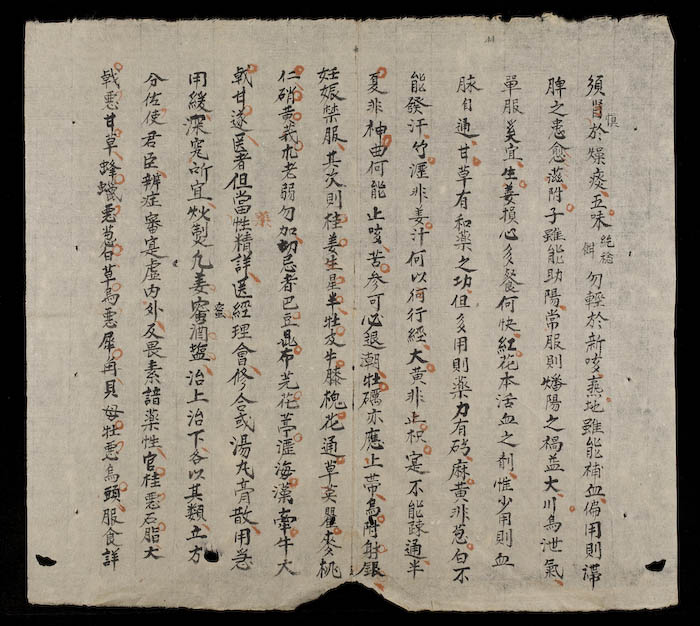 須慎於燥痰五味勿輕於新咳熟地雖能補血偏用則滯
脾之患愈滋附子雖能助陽常服則燔陽之禍益大川烏泄氣
單服奚宜生姜損心多餐何快紅花本活血之剤惟少用則血
脉自通甘草有和藥之功但多用則藥力有碍麻黄非葱白不
能發汗竹瀝非姜汁何以何行經大黄非止枳寔不能疎通半
夏非神曲何能止咳苦參可必退潮牡礪亦應止帯烏附射銀
妊娠禁服其次則桂姜生星半牡文牛膝槐花通草英瞿麥桃
仁硝黄茋朮老弱勿加切忌者巴豆昆布芫花葶瀝海藻牽牛大
戟甘遂医者但當藥性精詳医經理會修合或湯丸膏散用急
用緩深究所宜炒製九姜蜜酒鹽治上治下各以其類立方
分佐使君臣辨症審寔虚内外及畏素諳藥性官桂悪石脂大
戟悪甘草蜂蠟悪葱白草烏悪犀角貝毋牡悪烏頭服食詳